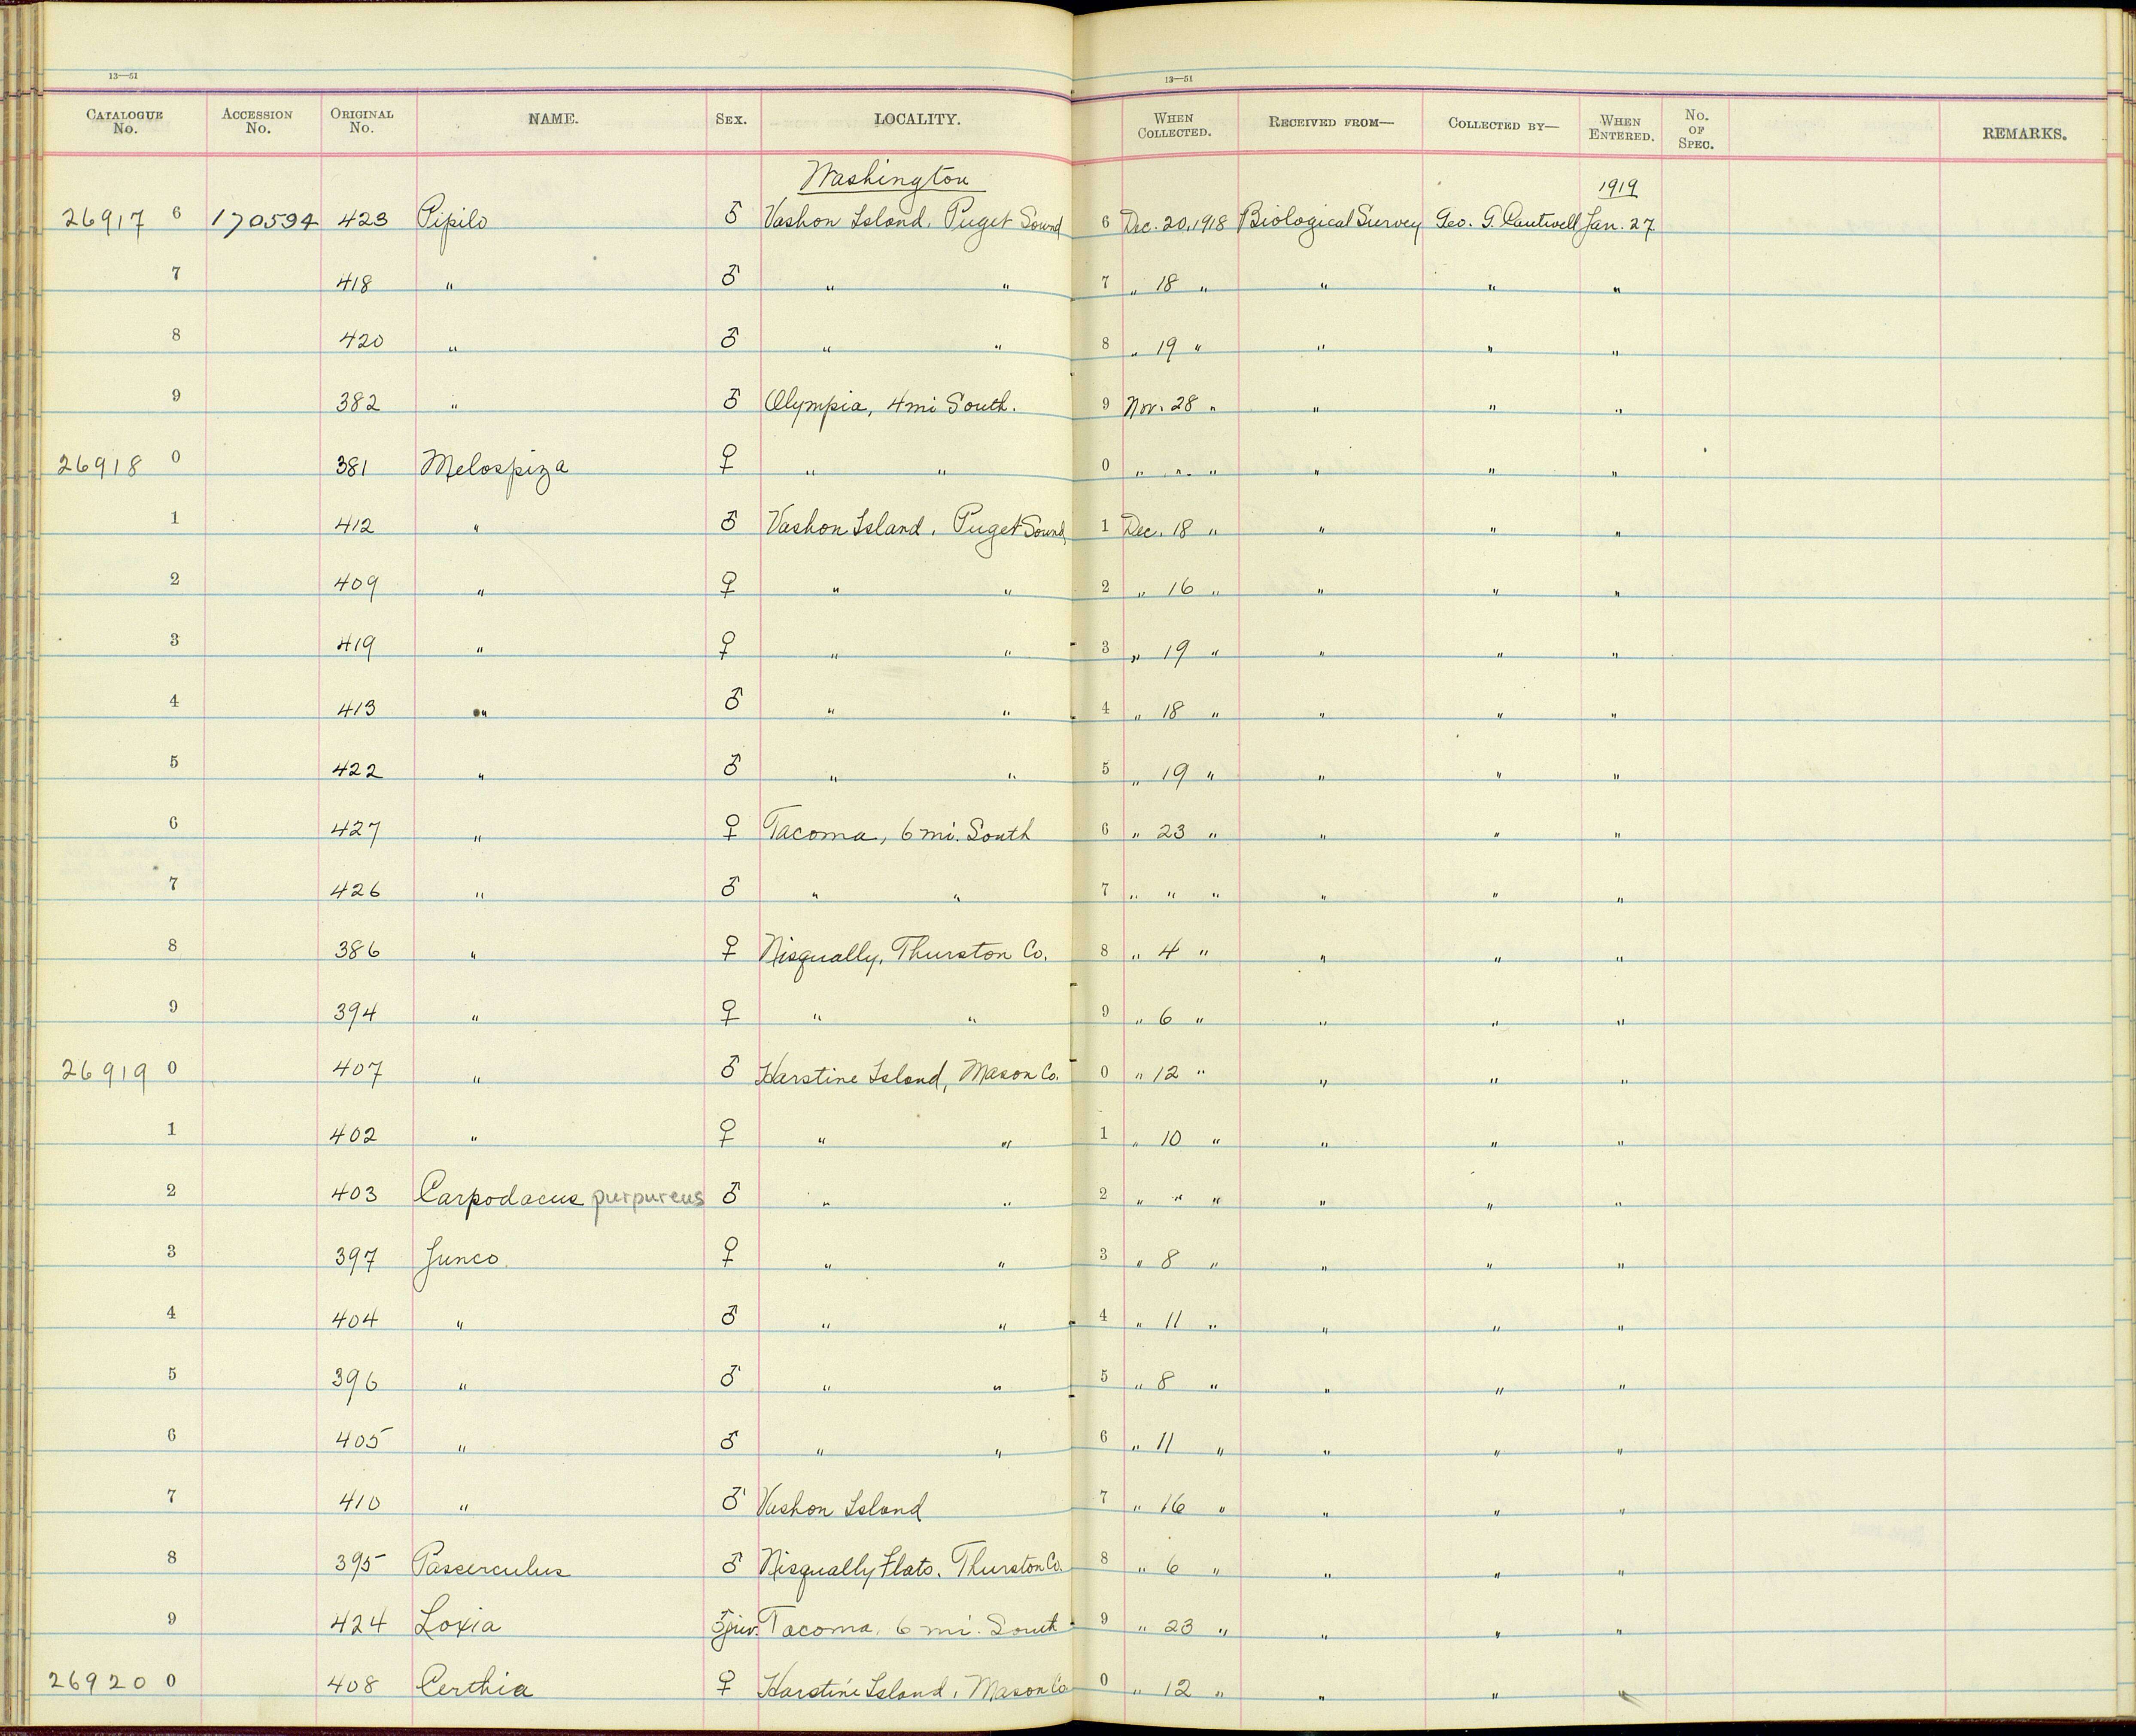 13—51 13—51
CATALOGUE No. ACCESSION No. ORIGINAL No. NAME. SEX. LOCALITY. WHEN COLLECTED. RECEIVED FROM— COLLECTED BY— WHEN ENTERED. No. OF SPEC. REMARKS.
Washington 1919
26917 6 170594 423 Pipilo ♂ Vashon Island, Puget Sound 6 Dec. 20, 1918 Biological Survey Geo. G. Cantwell Jan. 27
7 418 " ♂ " " 7 " 18 " " " "
8 420 " ♂ " " 8 " 19 " " " "
9 382 " ♂ Olympia, 4 mi South. 9 Nov. 28 " " " "
26918 0 381 Melospiza ♀ " " 0 " " " " " "
1 412 " ♂ Vashon Island, Puget Sound 1 Dec. 18 " " " "
2 409 " ♀ " " 2 " 16 " " " "
3 419 " ♀ " " 3 " 19 " " " "
4 413 " ♂ " " 4 " 18 " " " "
5 422 " ♂ " " 5 " 19 " " " "
6 427 " ♀ Tacoma, 6 mi. South 6 " 23 " " " "
7 426 " ♂ " " 7 " " " " " "
8 386 " ♀ Nisqually, Thurston Co. 8 " 4 " " " "
9 394 " ♀ " " 9 " 6 " " " "
26919 0 407 " ♂ Harstine Island, Mason Co. 0 " 12 " " " "
1 402 " ♀ " " 1 " 10 " " " "
2 403 Carpodacus purpureus ♂ " " 2 " " " " " "
3 397 Junco ♀ " " 3 " 8 " " " "
4 404 " ♂ " " 4 " 11 " " " "
5 396 " ♂ " " 5 " 8 " " " "
6 405 " ♂ " " 6 " 11 " " " "
7 410 " ♂ Vashon Island 7 " 16 " " " "
8 395 Passerculus ♂ Nisqually Flats, Thurston Co. 8 " 6 " " " "
9 424 Loxia ♂ juv. Tacoma, 6 mi. South 9 " 23 " " " "
26920 0 408 Certhia ♀ Harstine Island, Mason Co 0 " 12 " " " "